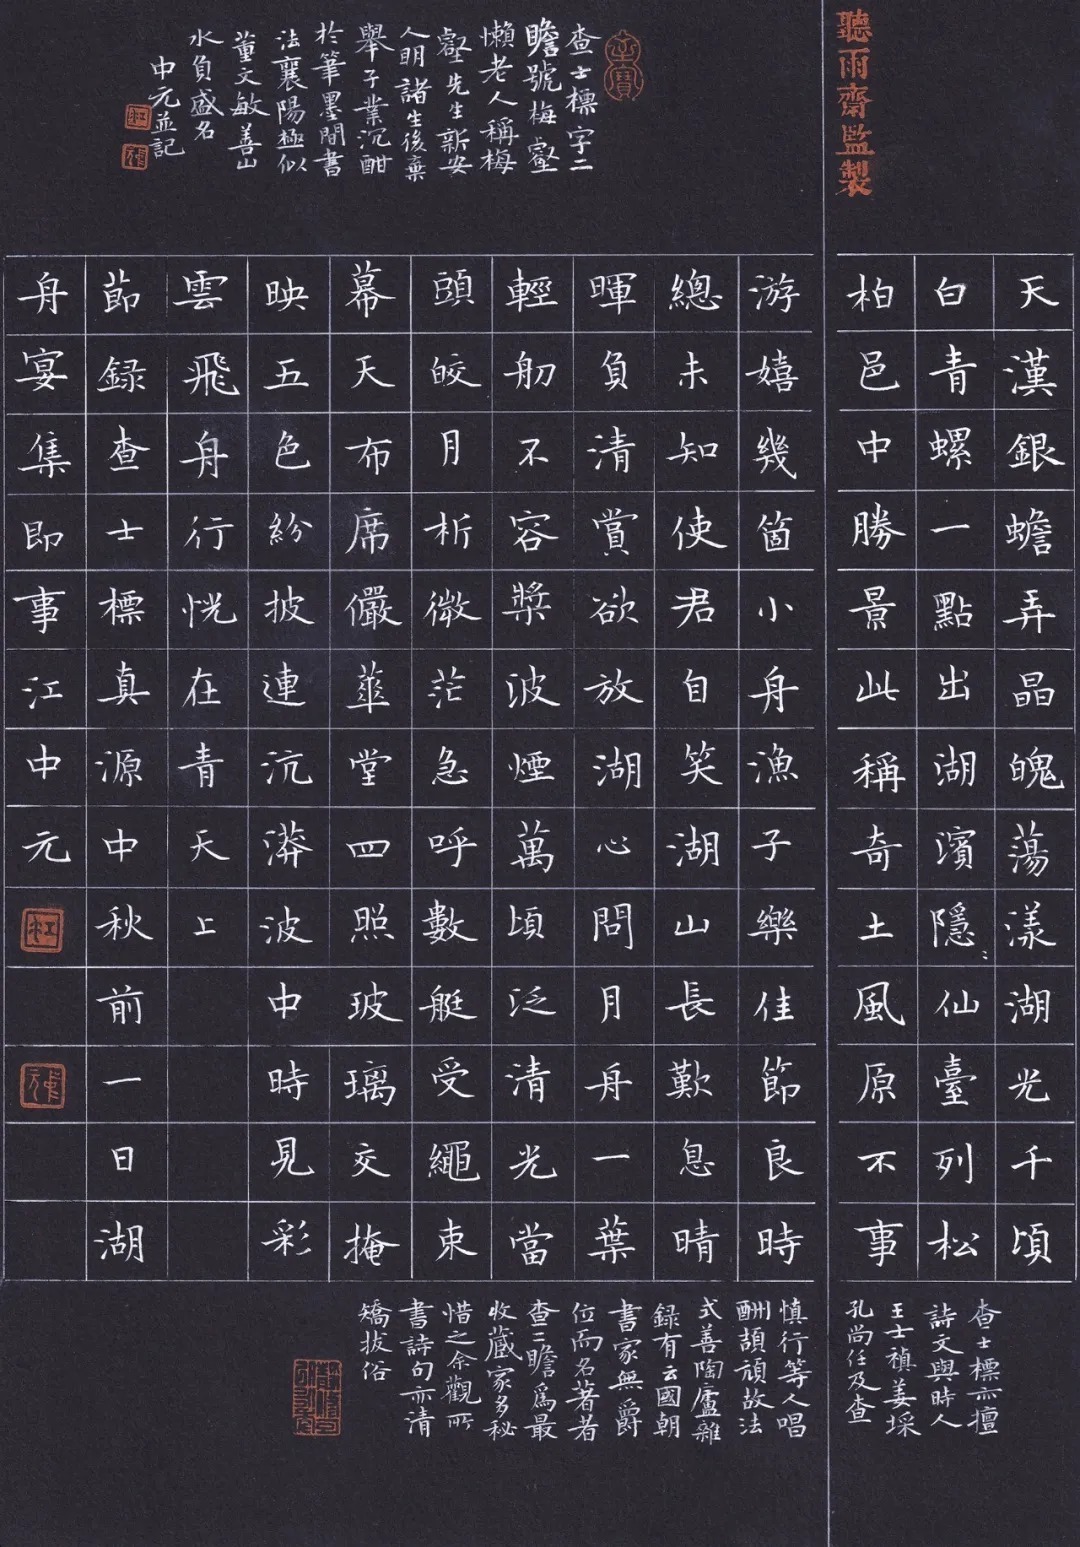 聽雨齋監製
天漢銀蟾弄晶魄蕩漾湖光千頃
白青螺一點出湖濱隱〻仙臺列松
柏邑中勝景此稱奇土風原不事
游嬉幾箇小舟漁子樂佳節良時
總未知使君自笑湖山長歎息晴
暉負清賞欲放湖心問月舟一葉
輕舠不容槳波煙萬頃泛清光當
頭皎月析微茫急呼數艇受繩束
幕天布席儼華堂四照玻璃交掩
映五色紛披連沆漭波中時見彩
雲飛舟行恍在青天上
節録查士標真源中秋前一日湖
舟宴集即事江中元
查士標字二
瞻號梅壑
懶老人稱梅
壑先生新安
人明諸生後棄
舉子業沉酣
於筆墨間書
法襄陽極似
董文敏善山
水負盛名
中元並記
查士標亦擅
詩文與時人
王士禛姜埰
孔尚任及查
慎行等人唱
酬頡頏故法
式善陶廬雜
録有云國朝
書家無爵
位而名著者
查二瞻爲最
收藏家多秘
惜之余觀所
書詩句亦清
矯拔俗